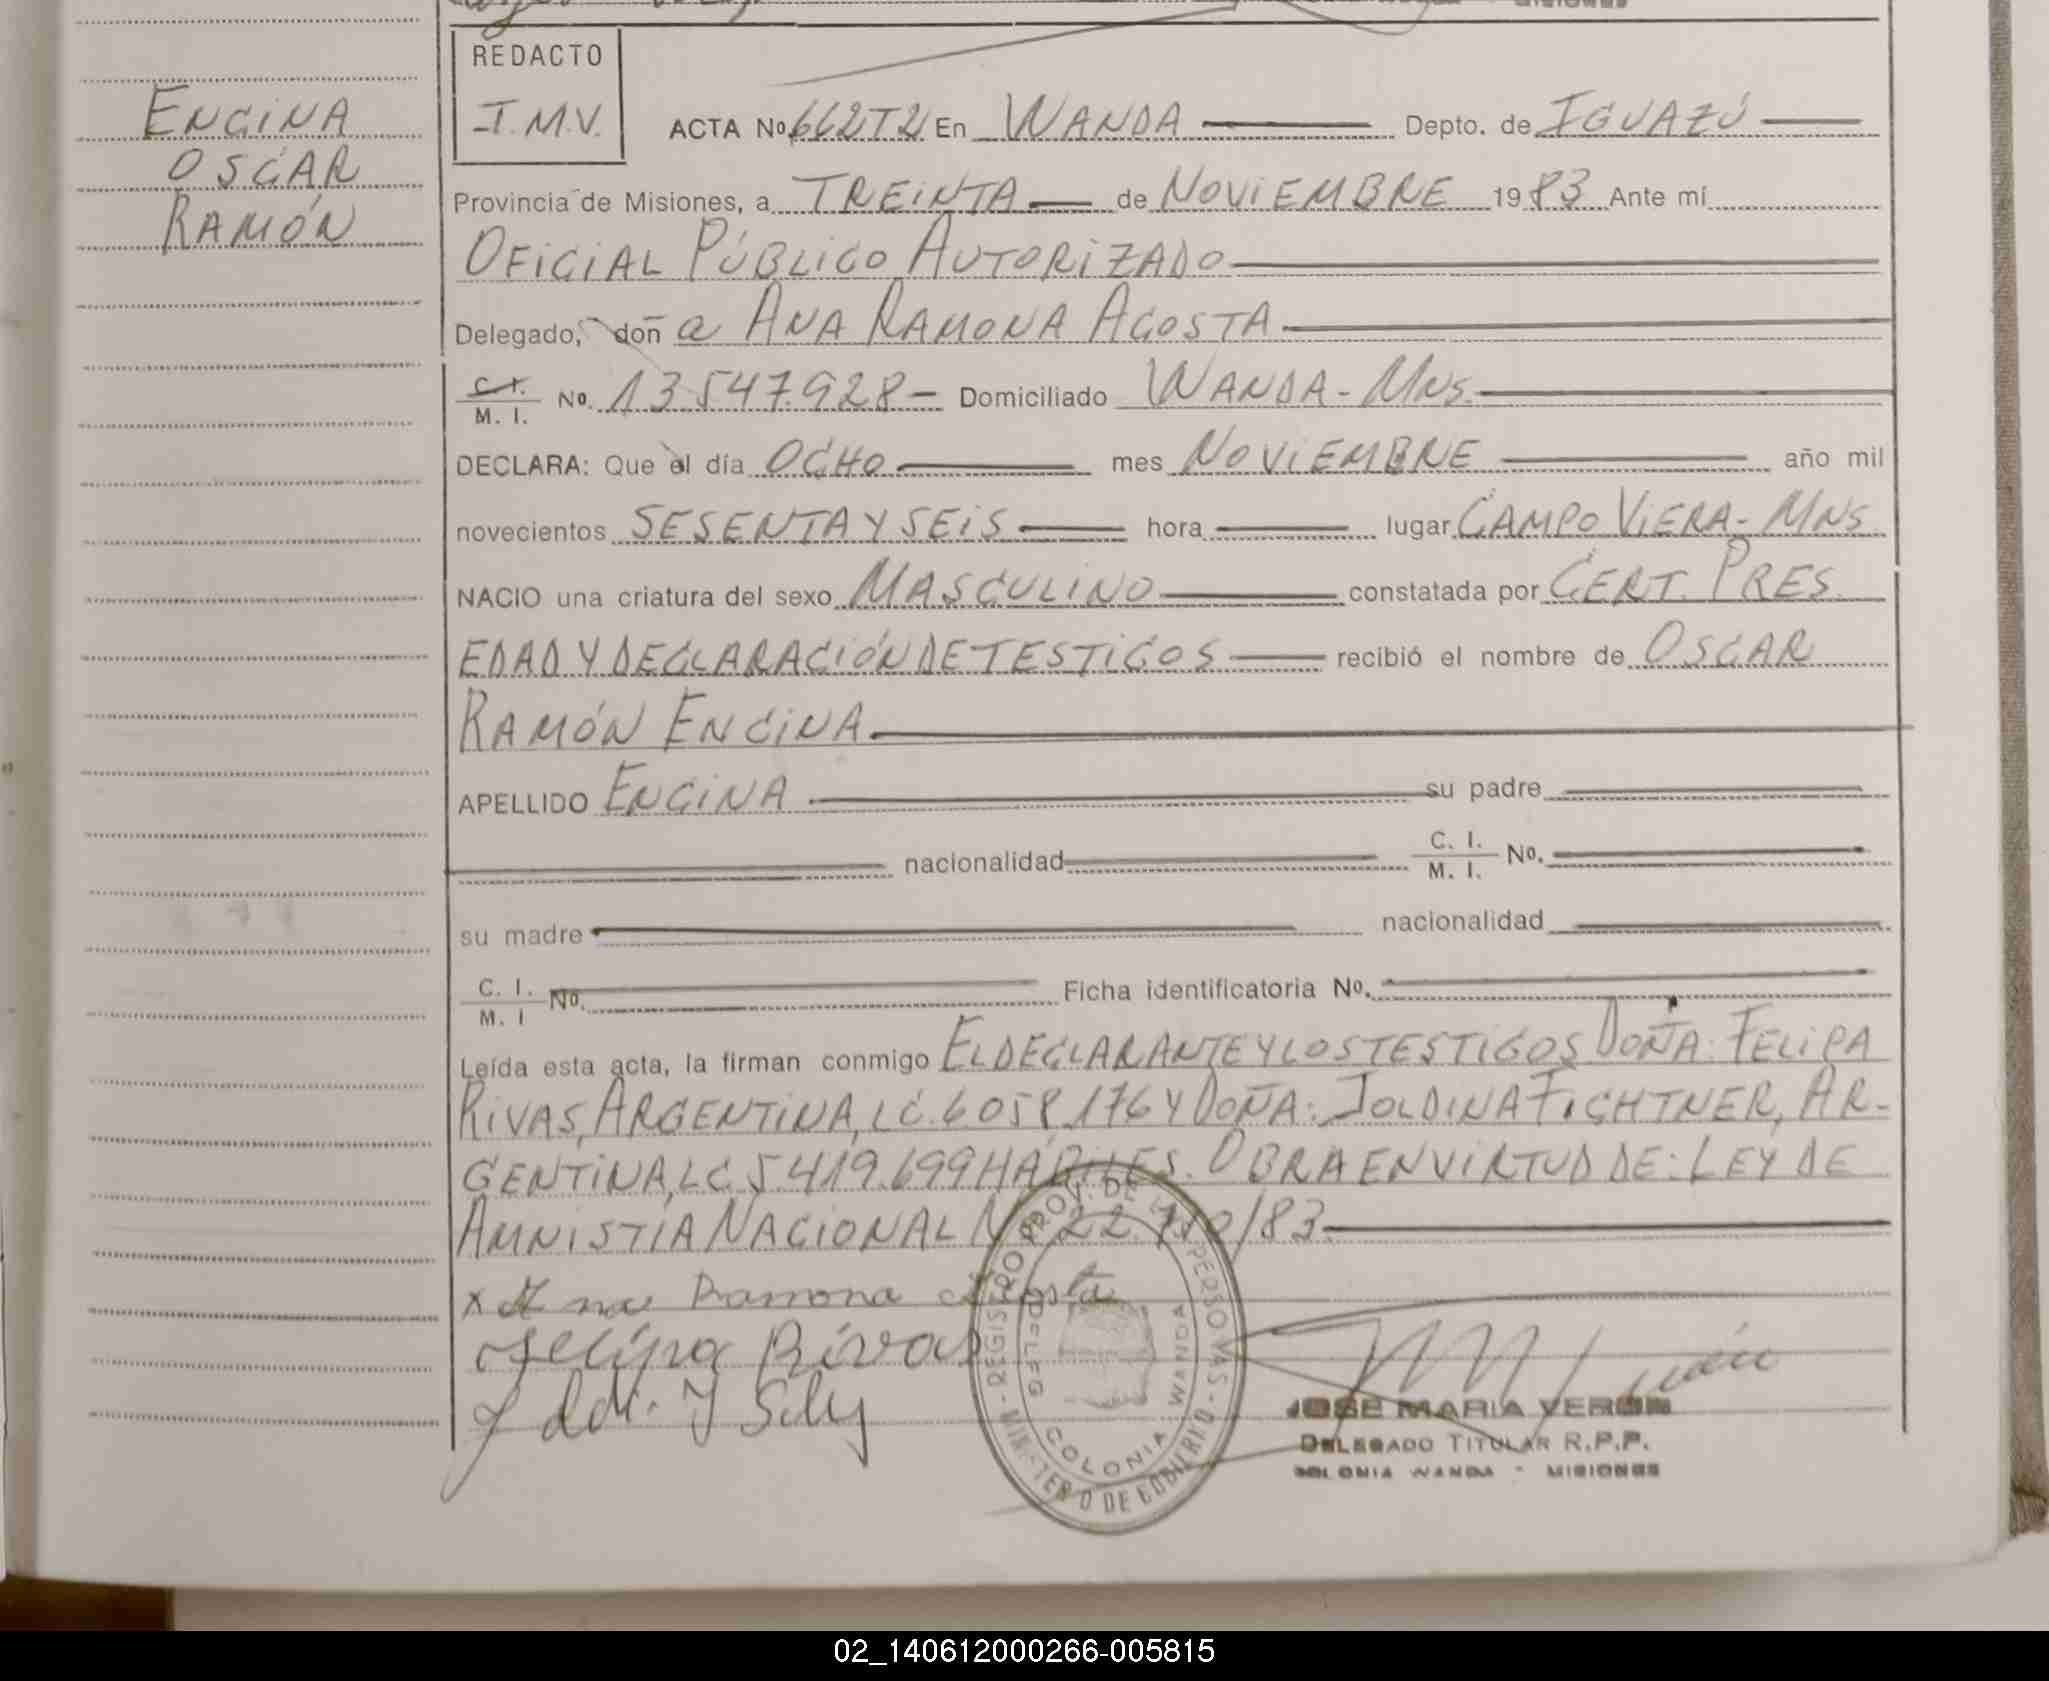 ENCINA
OSCAR
RAMÓN
REDACTO
I.M.V.
ACTA No. 662T2 En WANDA Depto. de IGUAZÚ
Provincia de Misiones, a TREINTA de NOVIEMBRE 1983 Ante mí
OFICIAL PÚBLICO AUTORIZADO
Delegado, doña ANA RAMONA ACOSTA
C. I. / M. I. No. 13.547.928 - Domiciliado WANDA - MNS.
DECLARA: Que el día OCHO mes NOVIEMBRE año mil
novecientos SESENTA Y SEIS hora lugar CAMPO VIERA - MNS
NACIO una criatura del sexo MASCULINO constatada por CERT. PRES.
EDAD Y DECLARACIÓN DE TESTIGOS recibió el nombre de OSCAR
RAMÓN ENCINA
APELLIDO ENCINA su padre
nacionalidad C. I. / M. I. No.
su madre nacionalidad
C. I. / M. I No. Ficha identificatoria No.
Leída esta acta, la firman conmigo EL DECLARANTE Y LOS TESTIGOS DOÑA: FELIPA
RIVAS, ARGENTINA, LC. 6.058.176 Y DOÑA: JOLDINA FICHTNER, AR-
GENTINA, LC. 5.419.699 HABILES. OBRA EN VIRTUD DE: LEY DE
AMNISTÍA NACIONAL Nº 22. /83.
x Ana Ramona Acosta
Felipa Rivas
REGISTRO PROV. DE LAS PERSONAS - MINISTERIO DE GOBIERNO
COLONIA WANDA
JOSE MARIA VERON
DELEGADO TITULAR R.P.P.
COLONIA WANDA - MISIONES
02_140612000266-005815